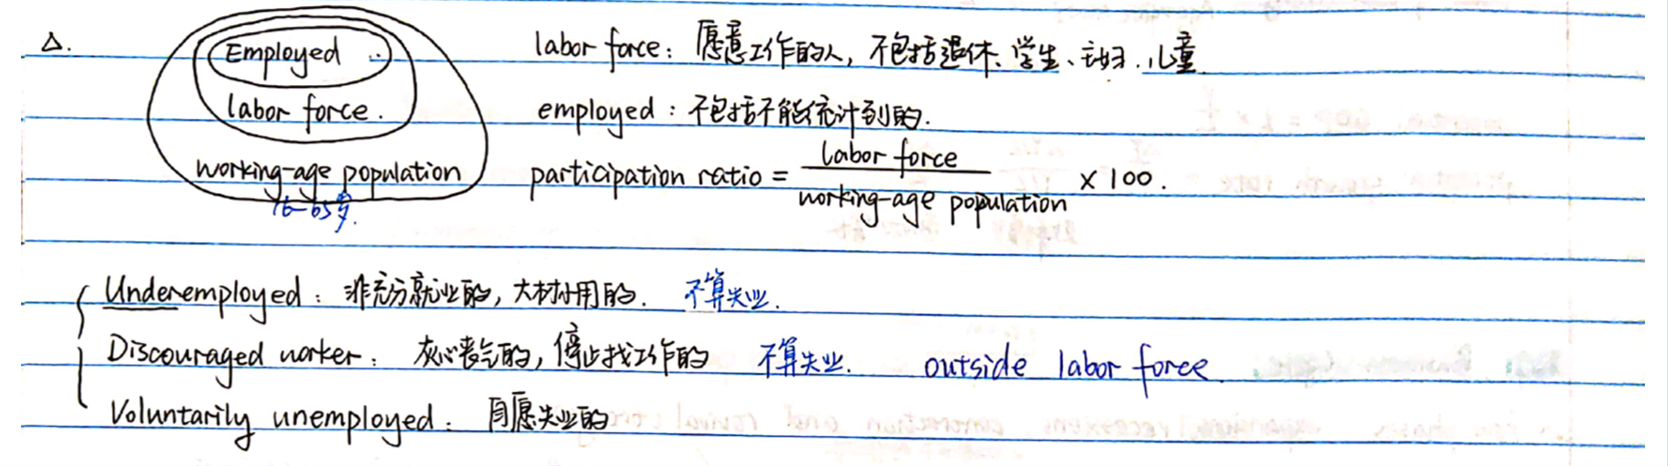 △.
Employed
labor force.
working-age population
16-65岁.
labor force: 愿意工作的人, 不包括退休、学生、主妇、儿童.
employed: 不包括不能统计到的.
participation ratio = labor force / working-age population × 100.
Underemployed: 非充分就业的, 大材小用的. 不算失业.
Discouraged worker: 灰心丧气的, 停止找工作的 不算失业. outside labor force.
Voluntarily unemployed: 自愿失业的